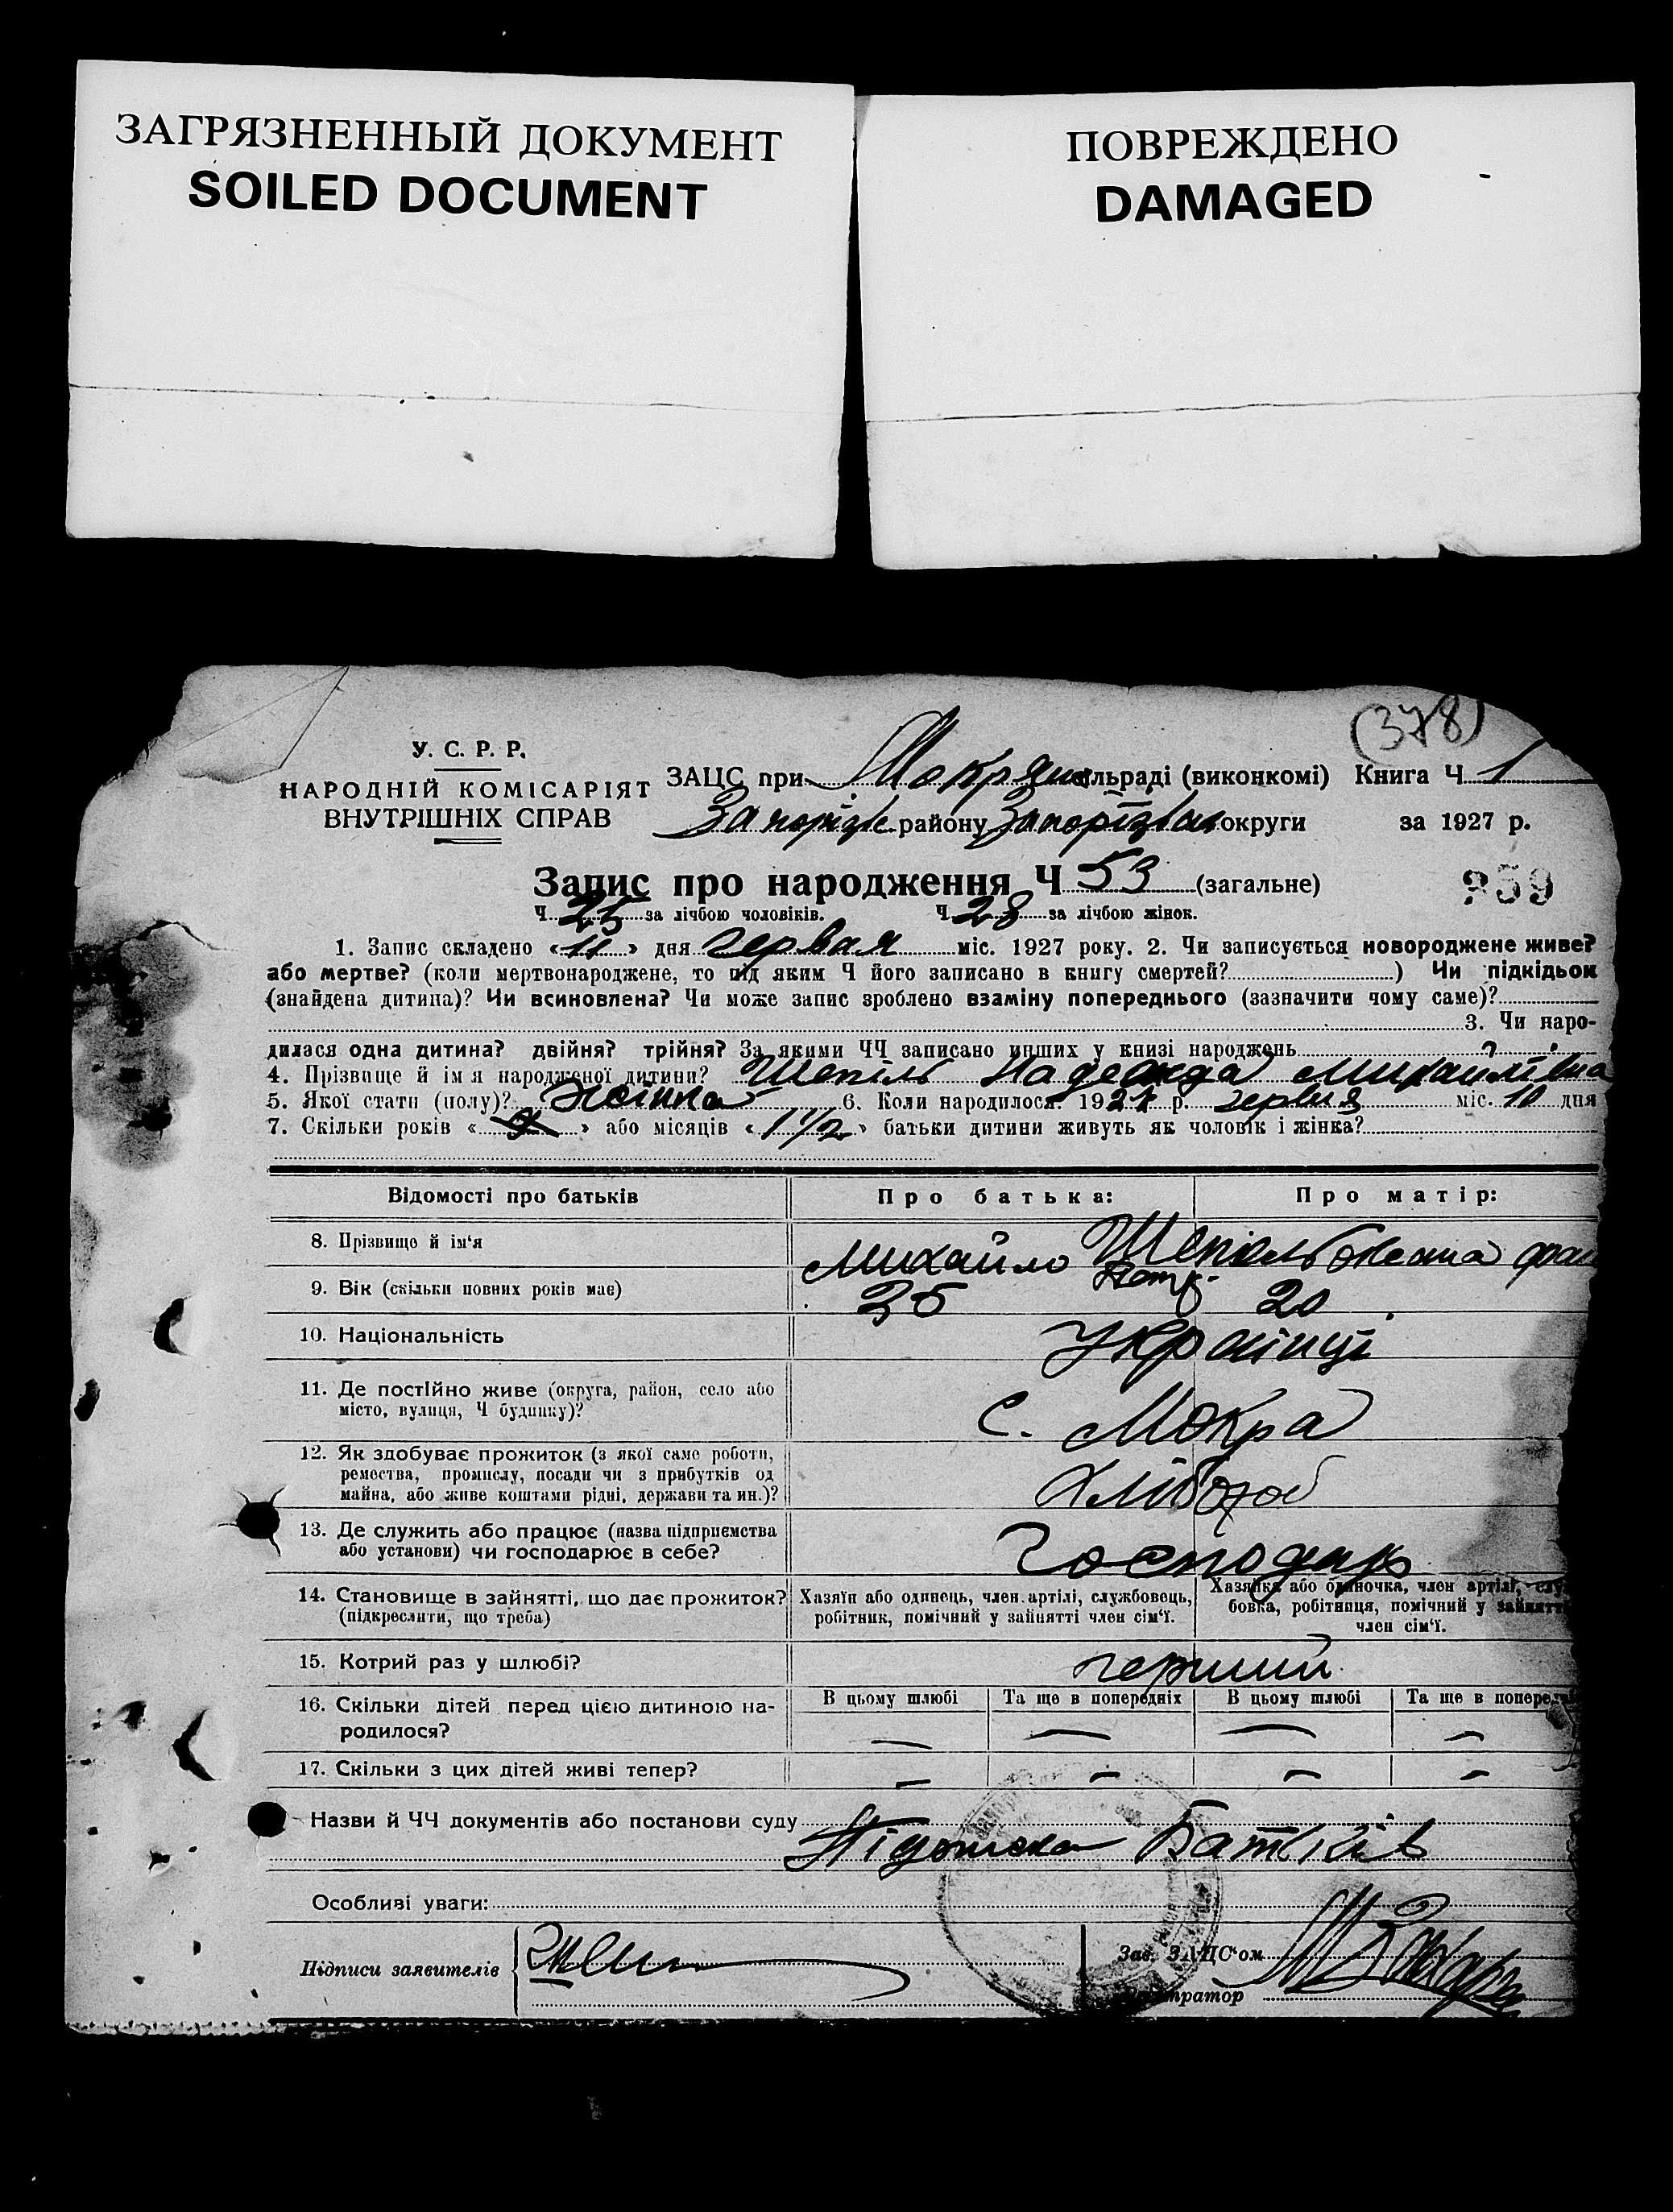 ЗАГРЯЗНЕННЫЙ ДОКУМЕНТ
SOILED DOCUMENT
ПОВРЕЖДЕНО
DAMAGED
(378)
У. С. Р. Р.
НАРОДНІЙ КОМІСАРІЯТ
ВНУТРІШНІХ СПРАВ
ЗАЦС при сільраді (виконкомі) Книга Ч 1
району округи за 1927 р.
Запис про народження Ч 53 (загальне)
259
Ч 25 за лічбою чоловіків. Ч 28 за лічбою жінок.
1. Запис складено «11» дня червня міс. 1927 року. 2. Чи записується новороджене живе?
або мертве? (коли мертвонароджене, то під яким Ч його записано в книгу смертей? ) Чи підкідьок
(знайдена дитина)? Чи всиновлена? Чи може запис зроблено взаміну попереднього (зазначити чому саме)?
3. Чи наро-
дилася одна дитина? двійня? трійня? За якими ЧЧ записано инших у книзі народжень ?
4. Прізвище й ім'я народженої дитини? Шепіль Надежда Михайлівна
5. Якої стати (полу)? жінка 6. Коли народилося: 1927 р. червня міс. 10 дня
7. Скільки років « » або місяців «1 1/2» батьки дитини живуть як чоловік і жінка?
Відомості про батьків Про батька: Про матір:
8. Прізвище й ім'я Михайло Шепіль
9. Вік (скільки повних років має) 20
10. Національність Українці
11. Де постійно живе (округа, район, село або
місто, вулиця, Ч будинку)? С. Мокра
12. Як здобуває прожиток (з якої саме роботи,
ремества, промислу, посади чи з прибутків од
майна, або живе коштами рідні, держави та ин.)? Хлібороб
13. Де служить або працює (назва підприємства
або установи) чи господарює в себе? Господарь
14. Становище в зайнятті, що дає прожиток?
(підкреслити, що треба)
Хазяїн або одинець, член артілі, службовець,
робітник, помічний у зайнятті член сім'ї.
Хазяйка або одиночка, член артілі, служ
бовка, робітниця, помічний у зайнятті
член сім'ї.
15. Котрий раз у шлюбі? перший
16. Скільки дітей перед цією дитиною на-
родилося?
В цьому шлюбі Та ще в попередніх В цьому шлюбі Та ще в попередн
— — — —
17. Скільки з цих дітей живі тепер? — — — —
Назви й ЧЧ документів або постанови суду
Підписка Батьків
Особливі уваги:
Підписи заявителів
Зав. ЗАЦС'ом
Реєстратор